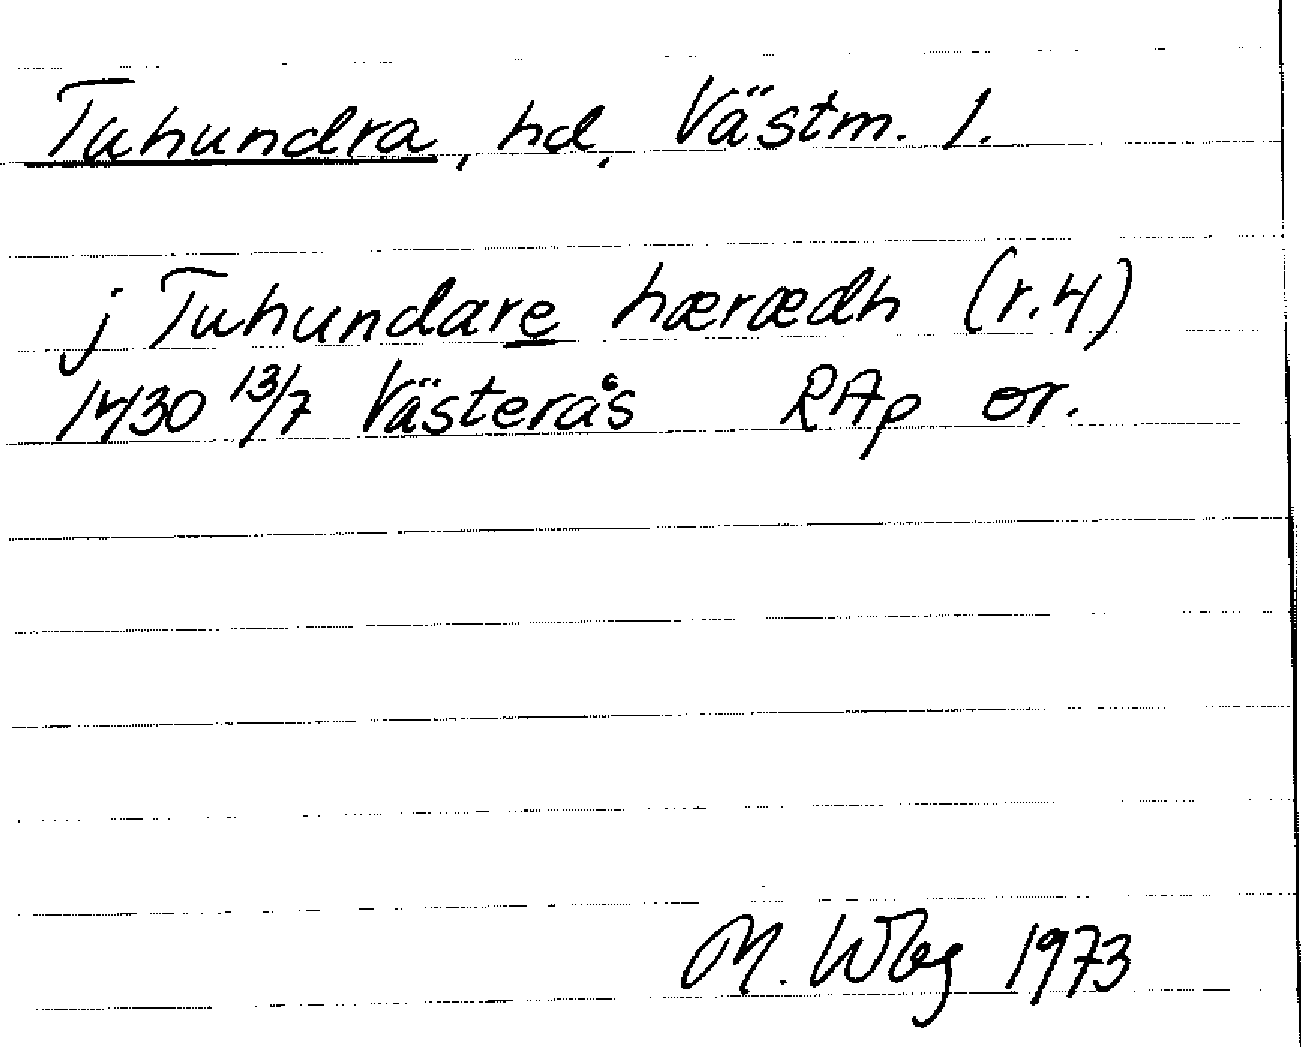 Tuhundra, hd, Västm. l.
j Tuhundare hærædh (r.4)
1430 13/7 Västerås RAp or.
M. Wbg 1973